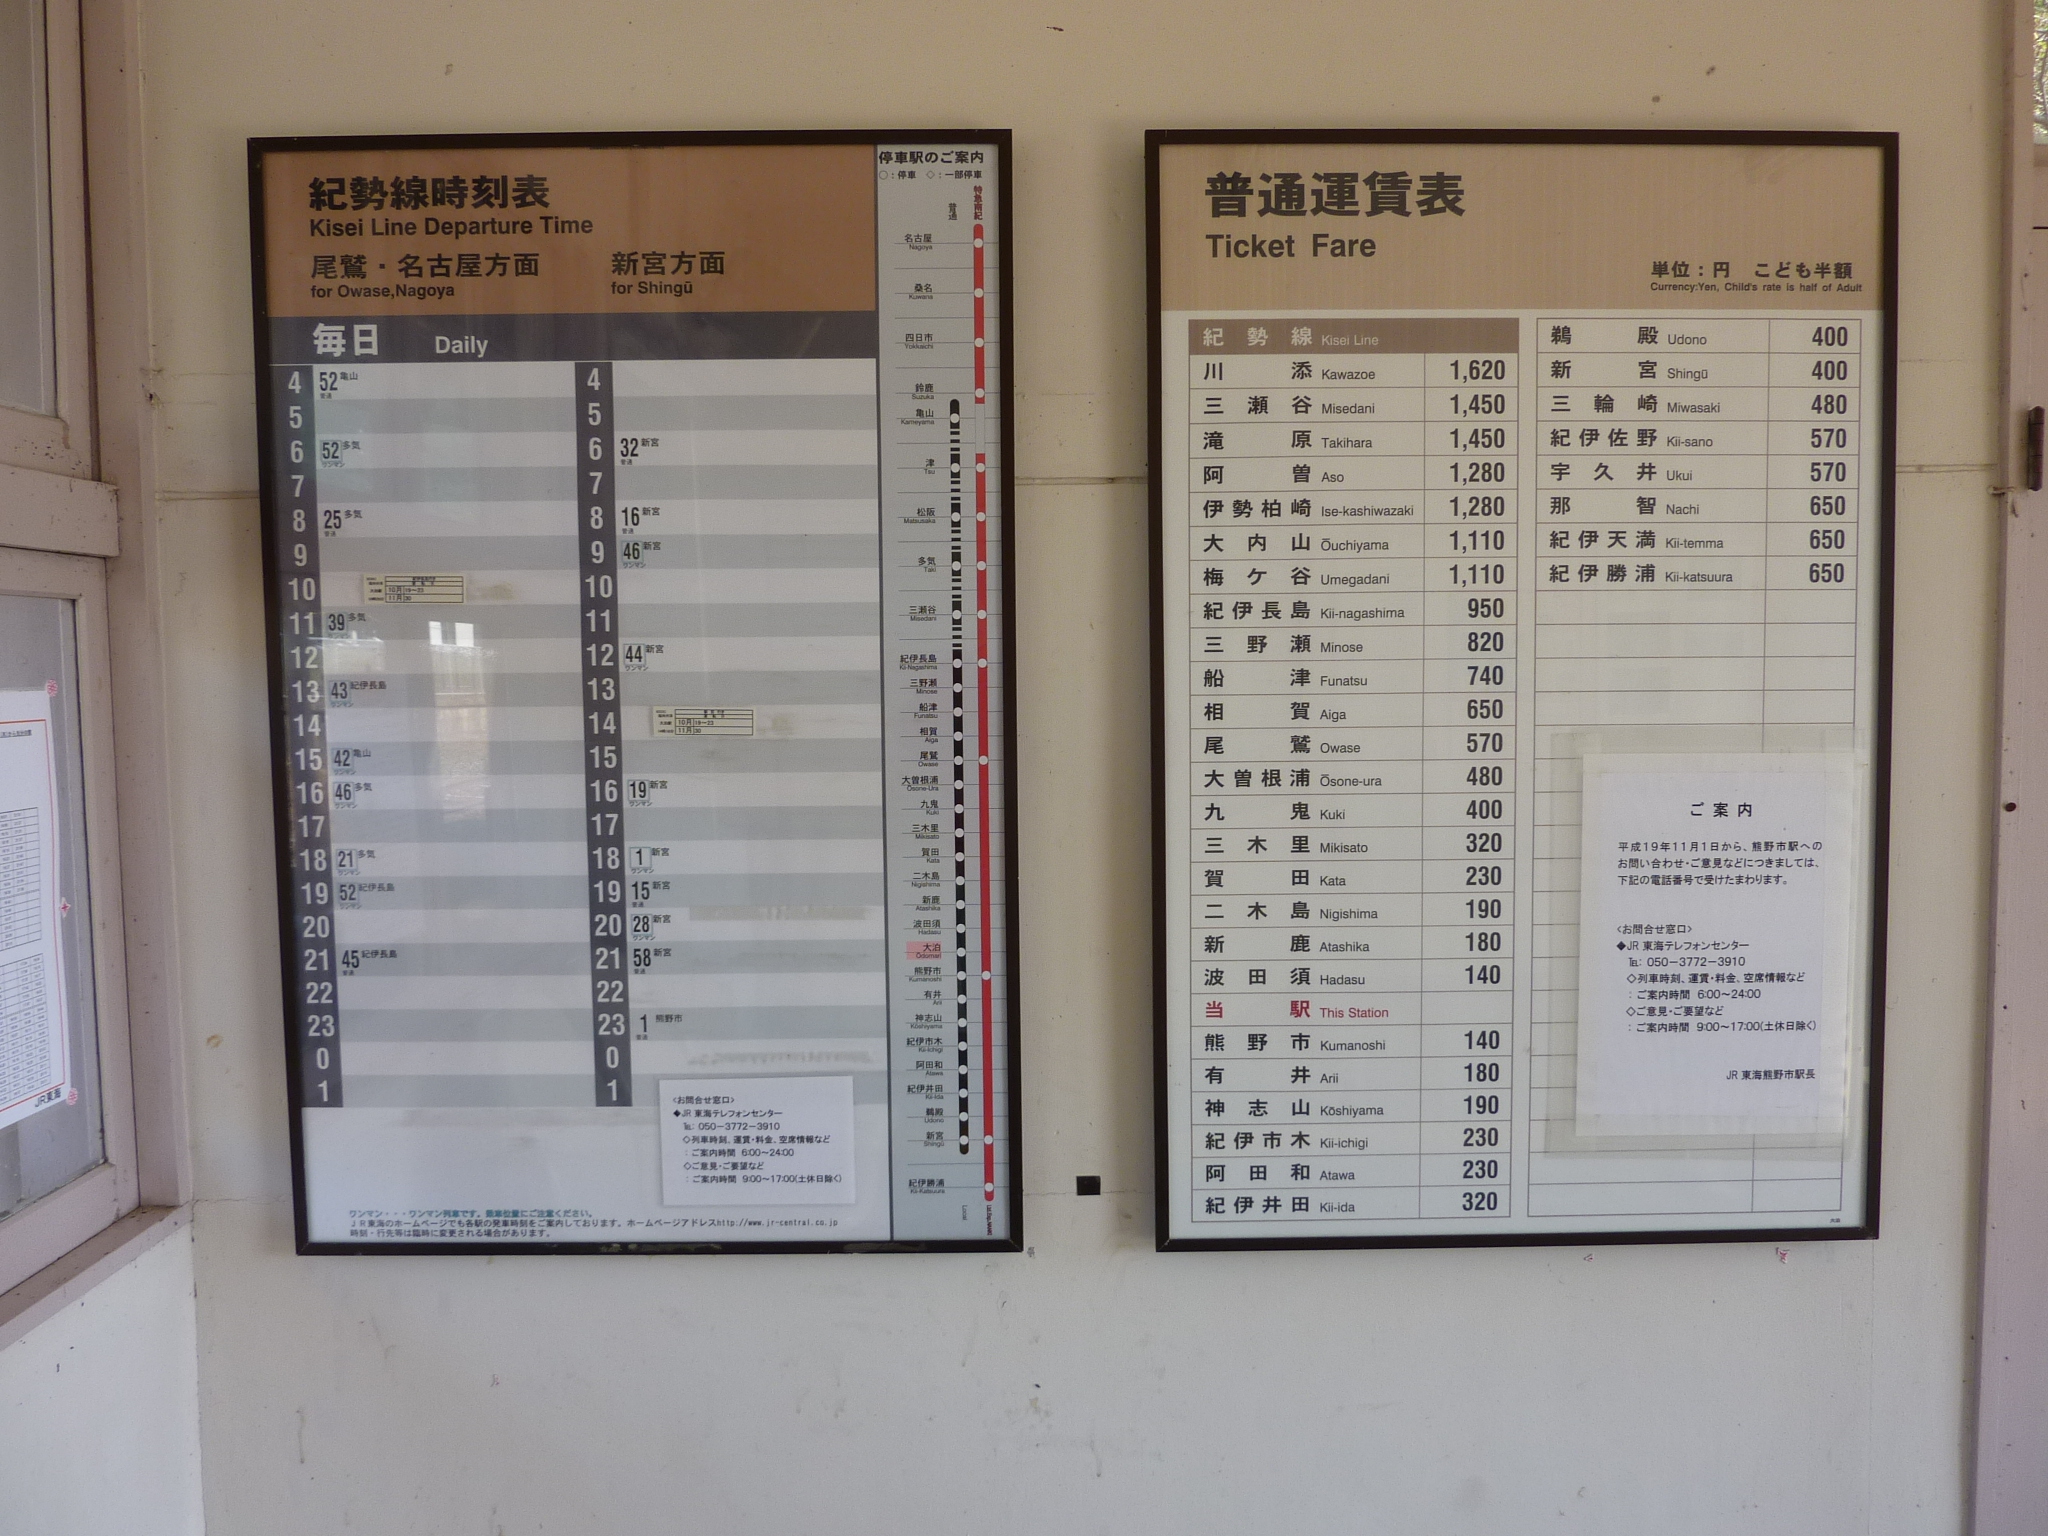 紀勢線時刻表
Kisei Line Departure Time
尾鷲・名古屋方面 新宮方面
for Owase,Nagoya for Shingū
毎日 Daily
4 52 亀山 普通 4
5 5
6 52 多気 ワンマン 6 32 新宮 普通
7 7
8 25 多気 普通 8 16 新宮 普通
9 9 46 新宮 ワンマン
10 10月 19~23 11月 30 10
11 39 多気 ワンマン 11
12 12 44 新宮 ワンマン
13 43 紀伊長島 ワンマン 13
14 14 10月 19~23 11月 30
15 42 亀山 ワンマン 15
16 46 多気 ワンマン 16 19 新宮 ワンマン
17 17
18 21 多気 ワンマン 18 1 新宮 ワンマン
19 52 紀伊長島 ワンマン 19 15 新宮 普通
20 20 28 新宮 ワンマン
21 45 紀伊長島 普通 21 58 新宮 普通
22 22
23 23 1 熊野市 普通
0 0
1 1
<お問合せ窓口>
◆JR 東海テレフォンセンター
℡: 050-3772-3910
◇列車時刻、運賃・料金、空席情報など
: ご案内時間 6:00~24:00
◇ご意見・ご要望など
: ご案内時間 9:00~17:00(土休日除く)
ワンマン・・・ワンマン列車です。乗車位置にご注意ください。
JR東海のホームページでも各駅の発車時刻をご案内しております。ホームページアドレスhttp://www.jr-central.co.jp
時刻・行先等は臨時に変更される場合があります。
停車駅のご案内
○:停車 ◇:一部停車
普通 特急南紀
名古屋 Nagoya
桑名 Kuwana
四日市 Yokkaichi
鈴鹿 Suzuka
亀山 Kameyama
津 Tsu
松阪 Matsusaka
多気 Taki
三瀬谷 Misedani
紀伊長島 Kii-Nagashima
三野瀬 Minose
船津 Funatsu
相賀 Aiga
尾鷲 Owase
大曽根浦 Osone-Ura
九鬼 Kuki
三木里 Mikisato
賀田 Kata
二木島 Nigishima
新鹿 Atashika
波田須 Hadasu
大泊 Odomari
熊野市 Kumanoshi
有井 Arii
神志山 Kōshiyama
紀伊市木 Kii-Ichigi
阿田和 Atawa
紀伊井田 Kii-Ida
鵜殿 Udono
新宮 Shingū
紀伊勝浦 Kii-Katsuura
Local
普通運賃表
Ticket Fare
単位：円 こども半額
Currency:Yen, Child's rate is half of Adult
紀勢線 Kisei Line
川添 Kawazoe 1,620
三瀬谷 Misedani 1,450
滝原 Takihara 1,450
阿曽 Aso 1,280
伊勢柏崎 Ise-kashiwazaki 1,280
大内山 Ōuchiyama 1,110
梅ケ谷 Umegadani 1,110
紀伊長島 Kii-nagashima 950
三野瀬 Minose 820
船津 Funatsu 740
相賀 Aiga 650
尾鷲 Owase 570
大曽根浦 Ōsone-ura 480
九鬼 Kuki 400
三木里 Mikisato 320
賀田 Kata 230
二木島 Nigishima 190
新鹿 Atashika 180
波田須 Hadasu 140
当駅 This Station
熊野市 Kumanoshi 140
有井 Arii 180
神志山 Kōshiyama 190
紀伊市木 Kii-ichigi 230
阿田和 Atawa 230
紀伊井田 Kii-ida 320
鵜殿 Udono 400
新宮 Shingū 400
三輪崎 Miwasaki 480
紀伊佐野 Kii-sano 570
宇久井 Ukui 570
那智 Nachi 650
紀伊天満 Kii-temma 650
紀伊勝浦 Kii-katsuura 650
ご案内
平成19年11月1日から、熊野市駅への
お問い合わせ・ご意見などにつきましては、
下記の電話番号で受けたまわります。
<お問合せ窓口>
◆JR 東海テレフォンセンター
℡: 050-3772-3910
◇列車時刻、運賃・料金、空席情報など
: ご案内時間 6:00~24:00
◇ご意見・ご要望など
: ご案内時間 9:00~17:00(土休日除く)
JR 東海熊野市駅長
JR東海